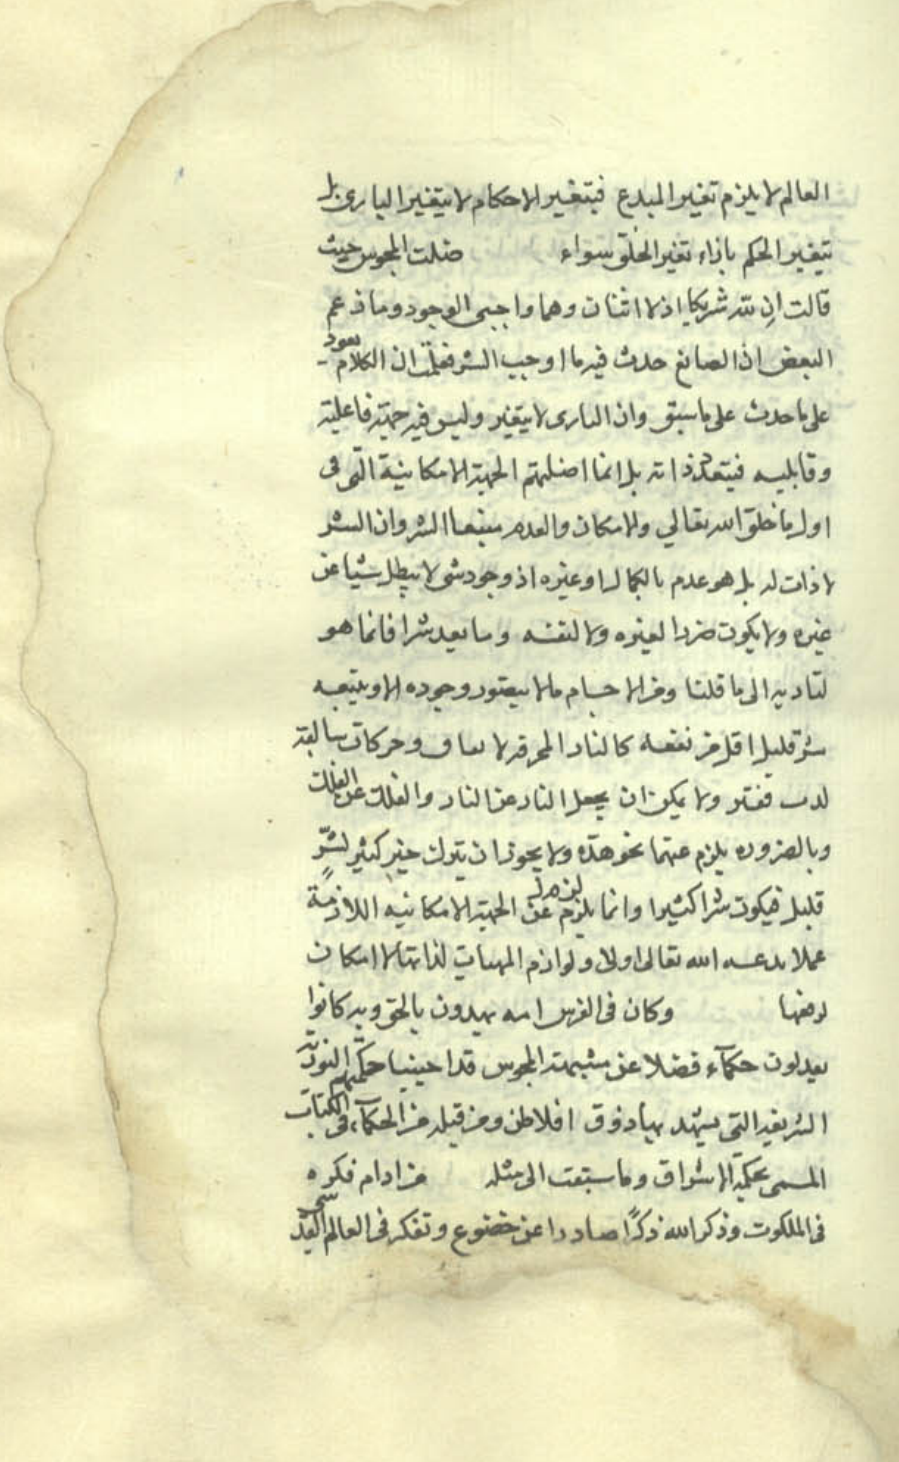 العالم لا يلزم تغير المبدع فيتغير الاحكام لا يتغير البارى بل
يتغير الحكم بازاء تغير الخلق سواء ضلت المجوس حيث
قالت ان لله شريكا اذ لا اثنان وهما واجبى الوجود وما زعم
البعض ان الصانع حدث فيه ما اوجب الشر فعلمت ان الكلام يعود
على ما حدث على ما سبق وان البارى لا يتغير وليس فيه جهتة فاعلية
وقابليه فيتعدد ذاته بل انما اضلهم الجهة الامكانية التى فى
اول ما خلق الله تعالي والامكان والعدم منبعا الشر وان الشر
لا ذات له بل هو عدم ما لكمال او غيره اذ وجود شى لا يبطل شيا عن
غيره ولا يكون ضررا لغيره ولا لنفسه وما يعد شرا فانما هو
لتاديه الى ما قلنا ومن الاجسام ما لا يتصور وجوده الا ويتبعه
شر قليل اقل من نفعه كالنار المحرقه وحركات سالبة
ولا يمكن ان يجعل النار عن النار والفلك عن الفلك
وبالضروره يلزم عنهما نحو هذه ولا يجوز ان يترك خير كثير لشر
قليل فيكون شرا كثيرا وانما يلزم عن الجهة الامكانيه اللازمة
الله تعالى اولا ولوازم المهيات لذاتها لا امكان
لرفضها وكان فى الفرس امه يهدون بالحق وبه كانوا
يعدلون حكمآء فضلا عن مشبهة المجوس قد احيينا حكمتهم النورية
الشريفه التى يشهد بها ذوق افلاطن ومن قبله من الحكمآء فى الكتاب
المسمى بحكمة الاشراق وما سبقت الى مثله من ادام فكره
فى الملكوت وذكر الله ذكرًا صادرا عن خضوع وتفكر فى العالم القدسى